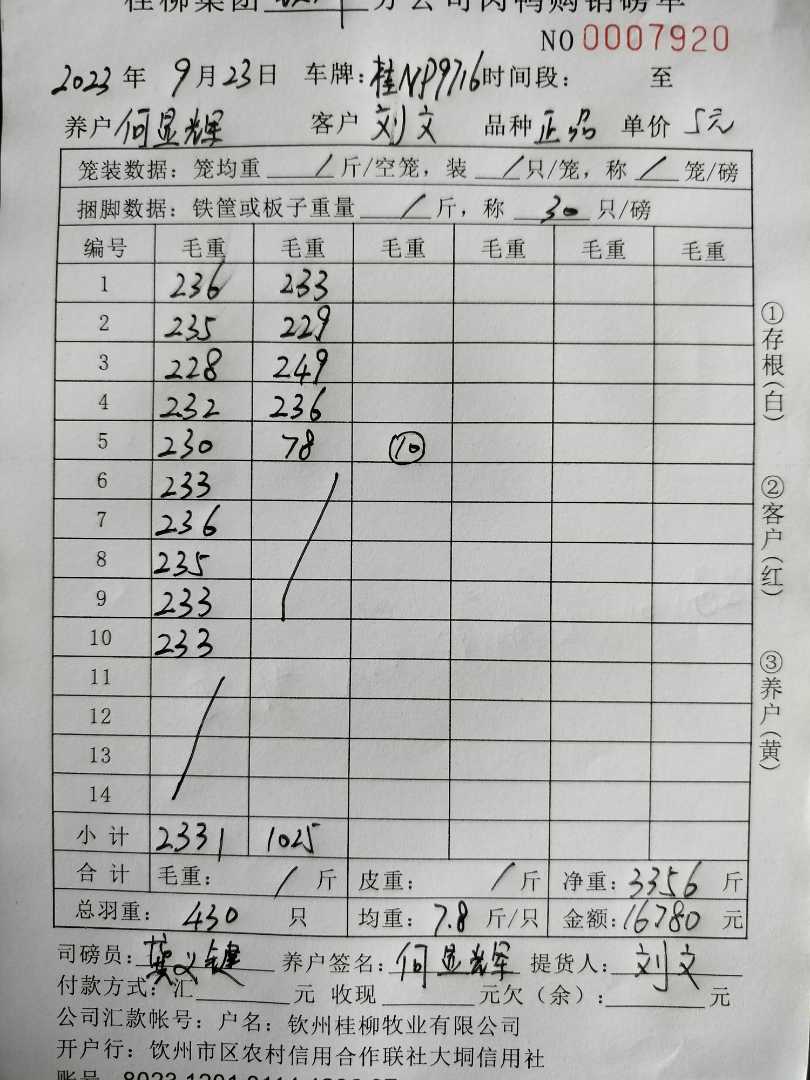 桂柳集团 分公司肉鸭购销磅单
NO 0007920
2023年 9月23日 车牌:桂NP9716 时间段: 至
养户 何显辉 客户 刘文 品种 正品 单价 5元
笼装数据: 笼均重 / 斤/空笼, 装 / 只/笼, 称 / 笼/磅
捆脚数据: 铁筐或板子重量 / 斤, 称 30 只/磅
编号 毛重 毛重 毛重 毛重 毛重 毛重
1 236 233
2 235 229
3 228 249
4 232 236
5 230 78 ⑩
6 233
7 236
8 235
9 233
10 233
11
12
13
14
小计 2331 1025
合计 毛重: / 斤 皮重: / 斤 净重: 3356 斤
总羽重: 430 只 均重: 7.8 斤/只 金额: 16780 元
司磅员: 养户签名: 何显辉 提货人: 刘文
付款方式: 汇 元 收现 元欠(余): 元
公司汇款帐号: 户名: 钦州桂柳牧业有限公司
开户行: 钦州市区农村信用合作联社大垌信用社
①存根(白)
②客户(红)
③养户(黄)